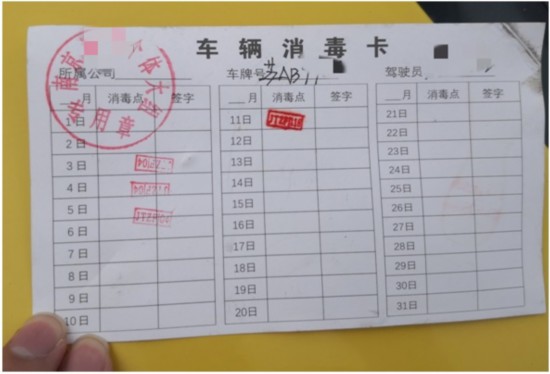 车辆消毒卡
所属公司 车牌号 苏AB 驾驶员
南京 体大
专用章
月 消毒点 签字 月 消毒点 签字 月 消毒点 签字
1日 11日 21日
2日 12日 22日
3日 13日 23日
4日 14日 24日
5日 15日 25日
6日 16日 26日
7日 17日 27日
8日 18日 28日
9日 19日 29日
10日 20日 30日
31日